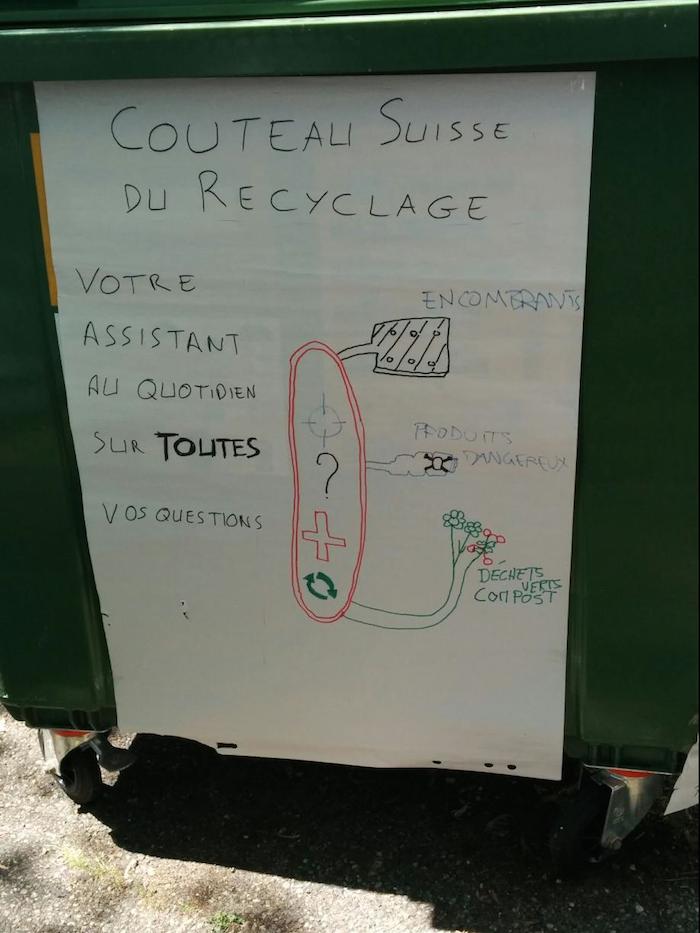 COUTEAU SUISSE
DU RECYCLAGE
VOTRE
ASSISTANT
AU QUOTIDIEN
SUR TOUTES
VOS QUESTIONS
ENCOMBRANTS
?
PRODUITS
DANGEREUX
DÉCHETS
VERTS
COMPOST